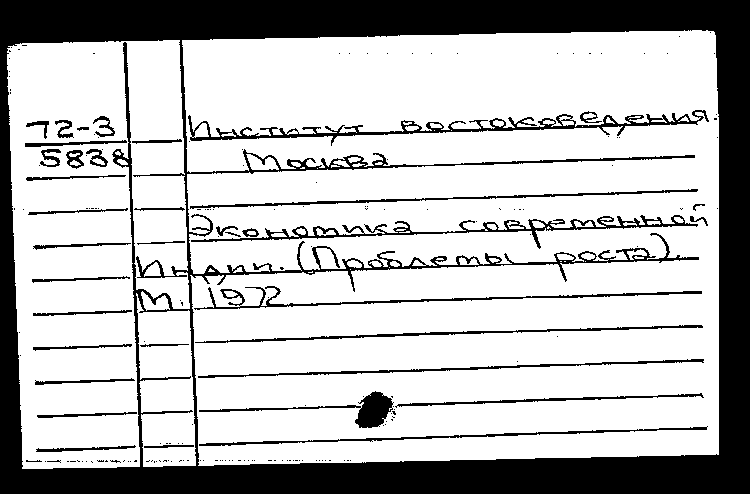 72-3 Институт востоковедения.
5838 Москва.
Экономика современной
Индии. (Проблемы роста).
М. 1972.